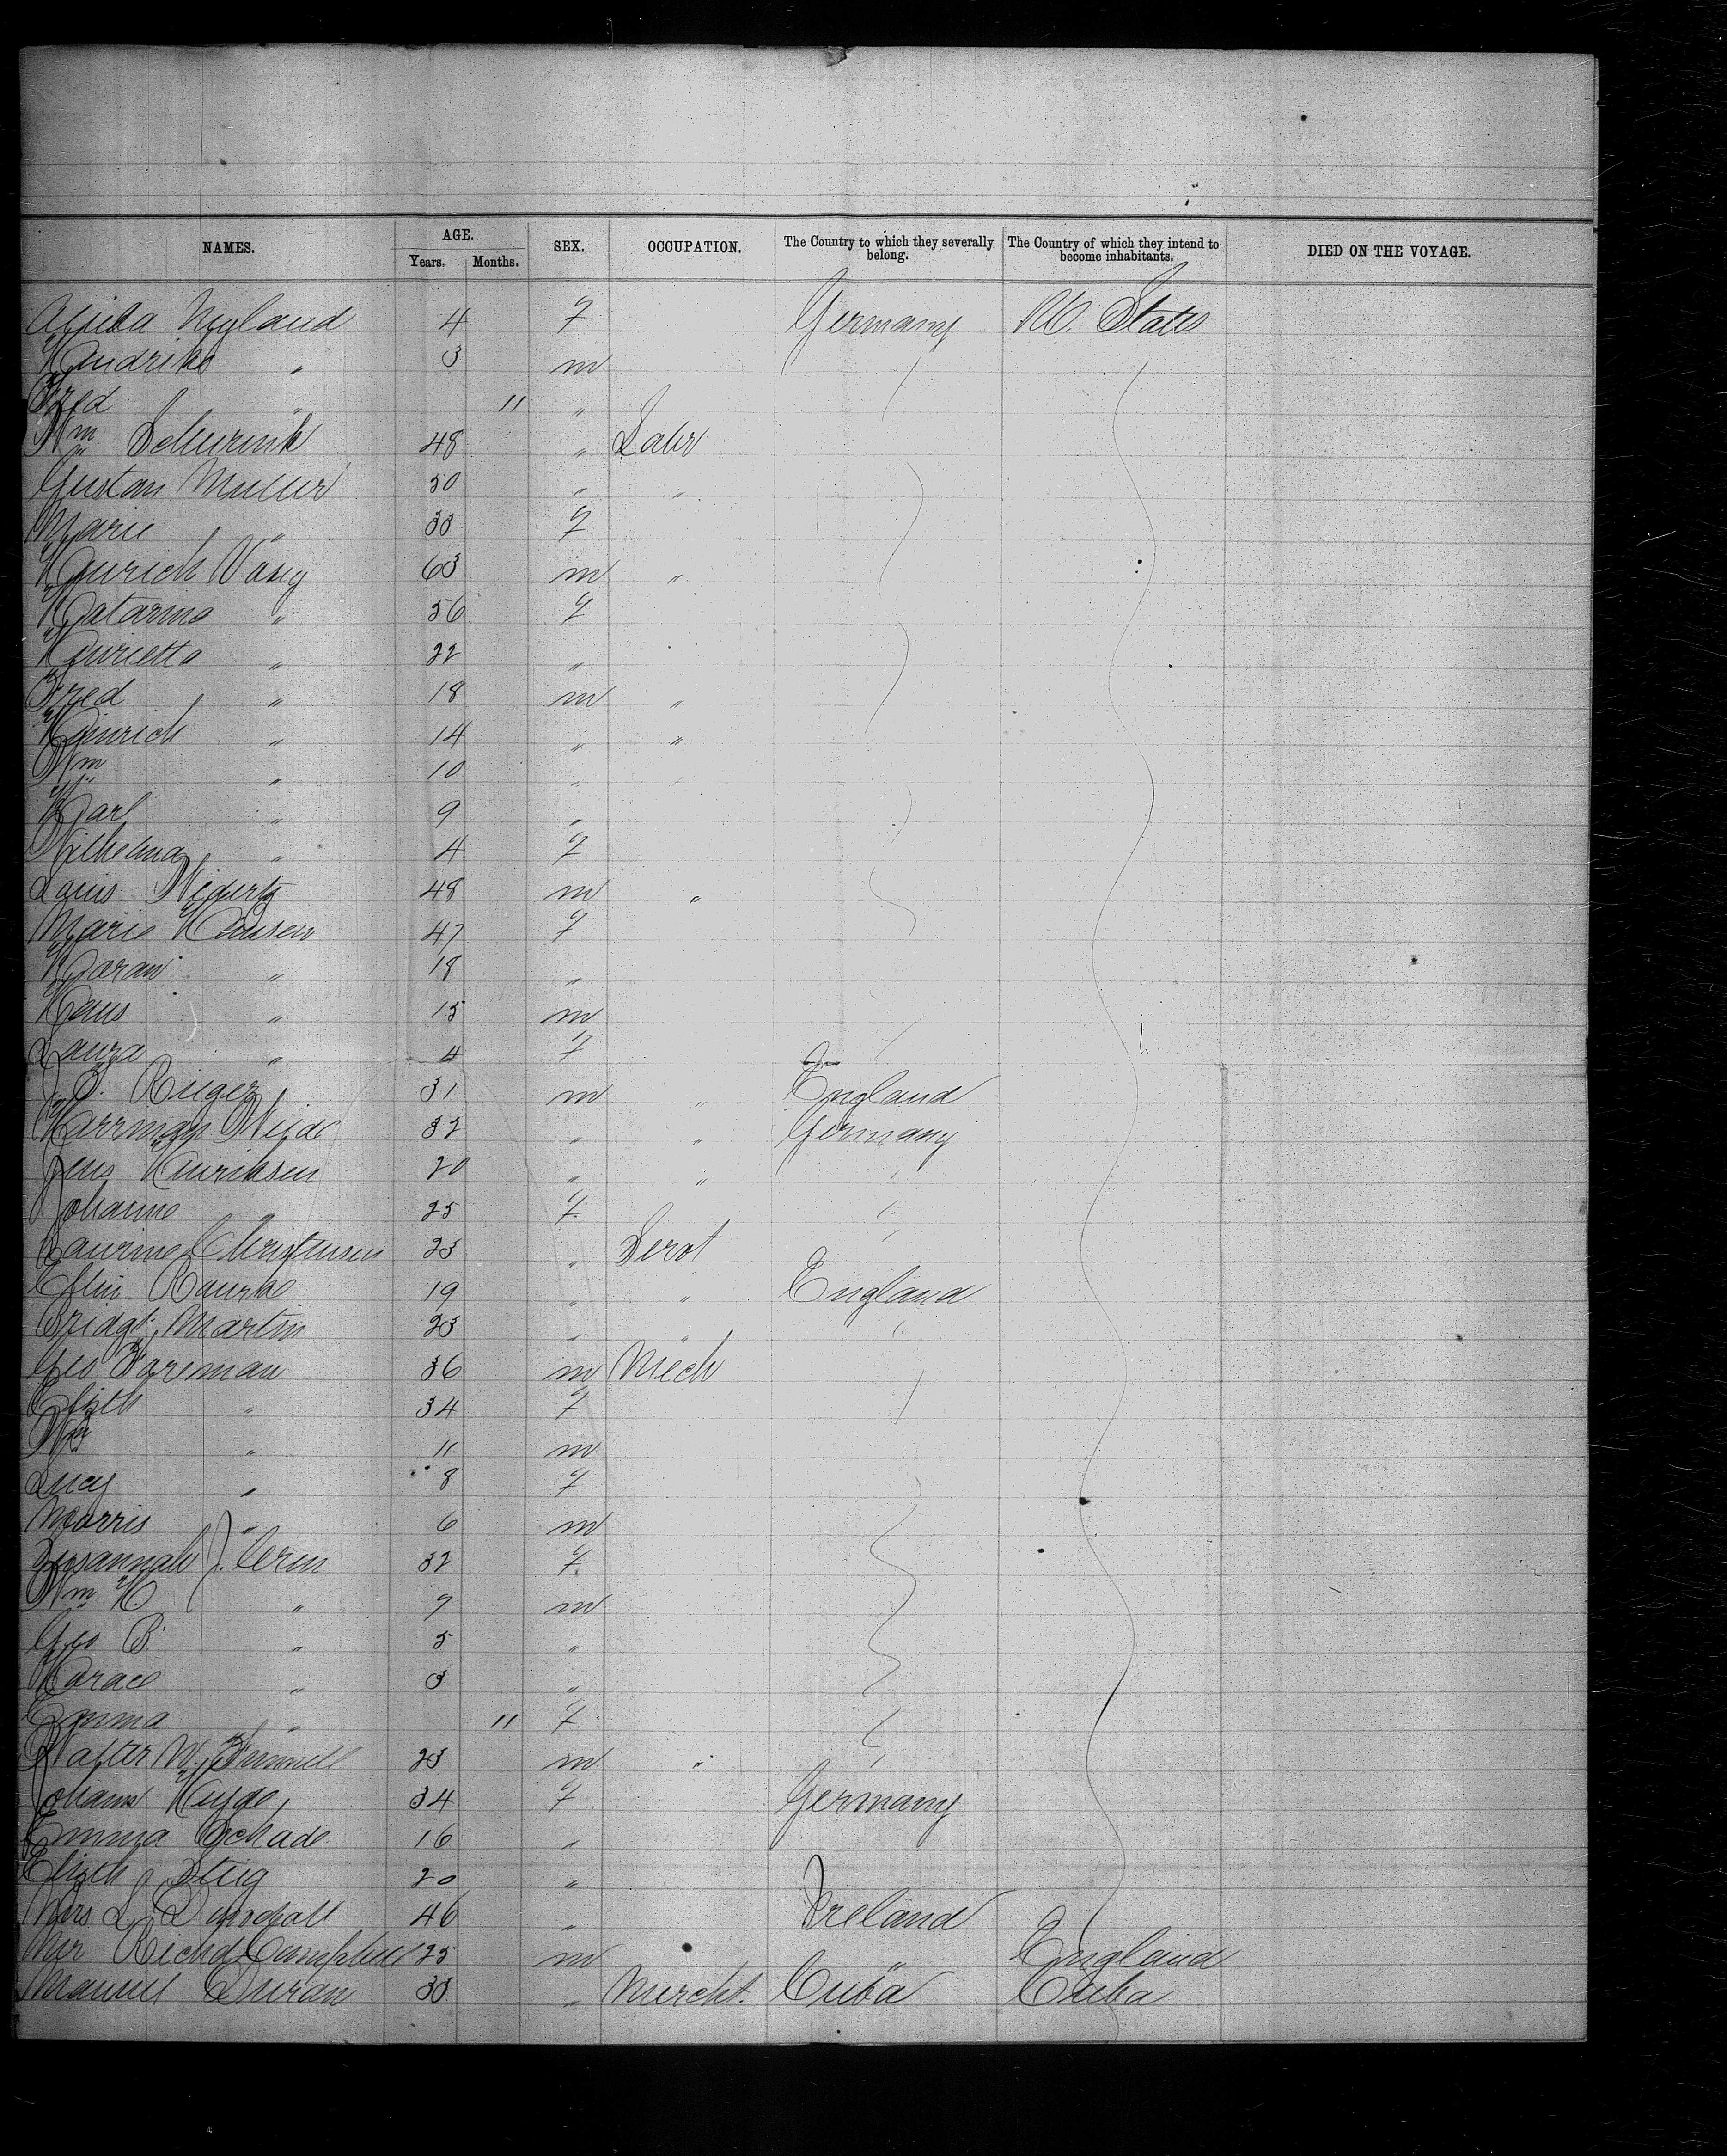 NAMES. AGE. SEX. OCCUPATION. The Country to which they severally belong. The Country of which they intend to become inhabitants. DIED ON THE VOYAGE.
Years. Months.
Nyland 4 f Germany U. States
Hendrike " 3 m
Fred " 11 "
Wm Schurink 48 " Labr
Gustav Muller 30 " "
Marie " 33 f
Heinrich Vasig 63 m "
Katarina " 56 f
Henrietta " 22 "
Fred " 18 m "
Heinrich " 14 " "
Wm " 10 "
Karl " 9 "
Wilhelmina " 4 f
Louis 48 m "
Marie Hansen 47 f
Karan " 18 "
Hans " 15 m
Laura " 4 f
J. Ruger 31 m " England
Harrman 32 " " Germany
Jens Henriksen 20 " "
Johanne " 25 f
Laurine Christensen 23 " Servt
Rourke 19 " " England
Bridgt Martin 23 " "
Geo Foreman 36 m Mech
Elizth " 34 f
Wm " 11 m
Lucy " 8 f
Morris " 6 m
Susannah J. 32 f
Wm H. " 7 m
Geo B. " 5 "
Horace " 3 "
Emma " 11 f
Walter W. 23 m "
Johanna Heyde 34 f Germany
Emma Schade 16 "
Elizth Stieg 20 "
Mrs L. 46 " Ireland
Mr Richd Campbell 25 m " England
Manuel Duran 33 " Mercht. Cuba Cuba